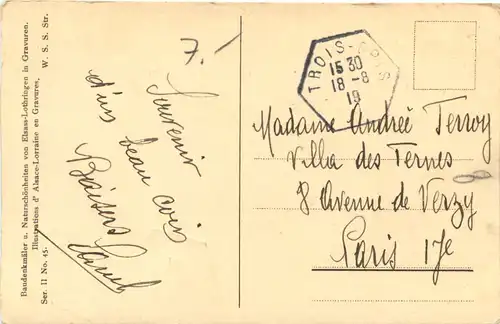 Baudenkmäler u. Naturschönheiten von Elsass-Lothringen in Gravuren.
Illustrations d' Alsace-Lorraine en Gravures.
Ser. II No. 45.
W. S. S. Str.
7.-
Souvenir
d'un
beau coin
Baisers
TROIS-EPIS
15 30
18-8
19
Madame Andrée Terroy
Villa des Ternes
8 Avenue de Verzy
Paris 17e
8